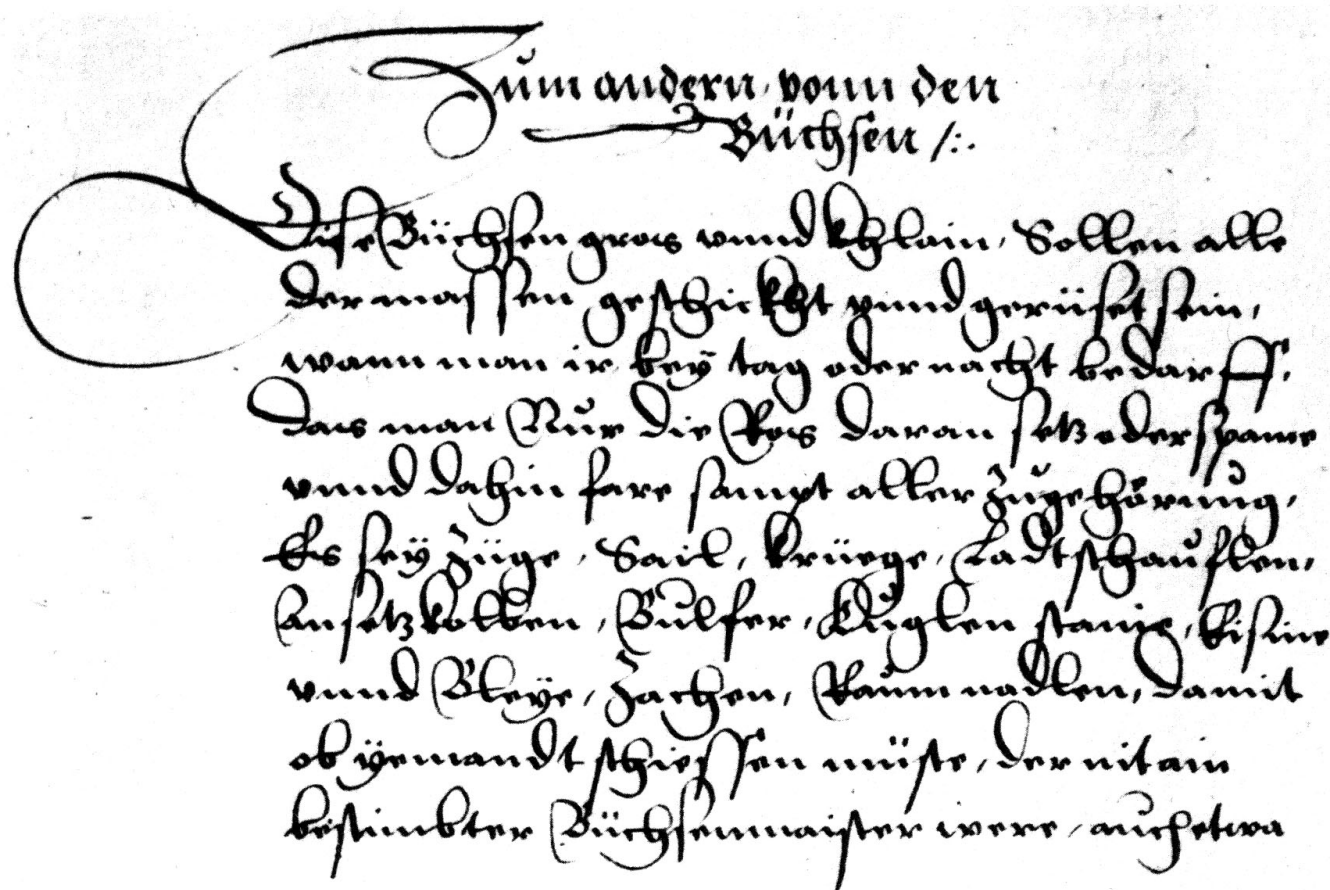 Zum andern, vonn den
Büchsen /:.
Dise Büchsen gros vnnd khlain, Sollen alle
der massen geschickht vnnd gerüset sein,
wann man ir bey tag oder nacht bedarff,
Das man Nur die Ros daran setz oder spanne
vnnd dahin fare sampt aller zugehörung,
Es sey Züge, Sail, krüege, Ladtschauflen,
Ansetzkolben, Bulfer, Kuglen stainė, Eisine
vnnd Bleye, Zachen, Raum nadlen, damit
ob yemandt schiessen müste, der nit ain
bestimbter Büchsenmaister were, auch etwa